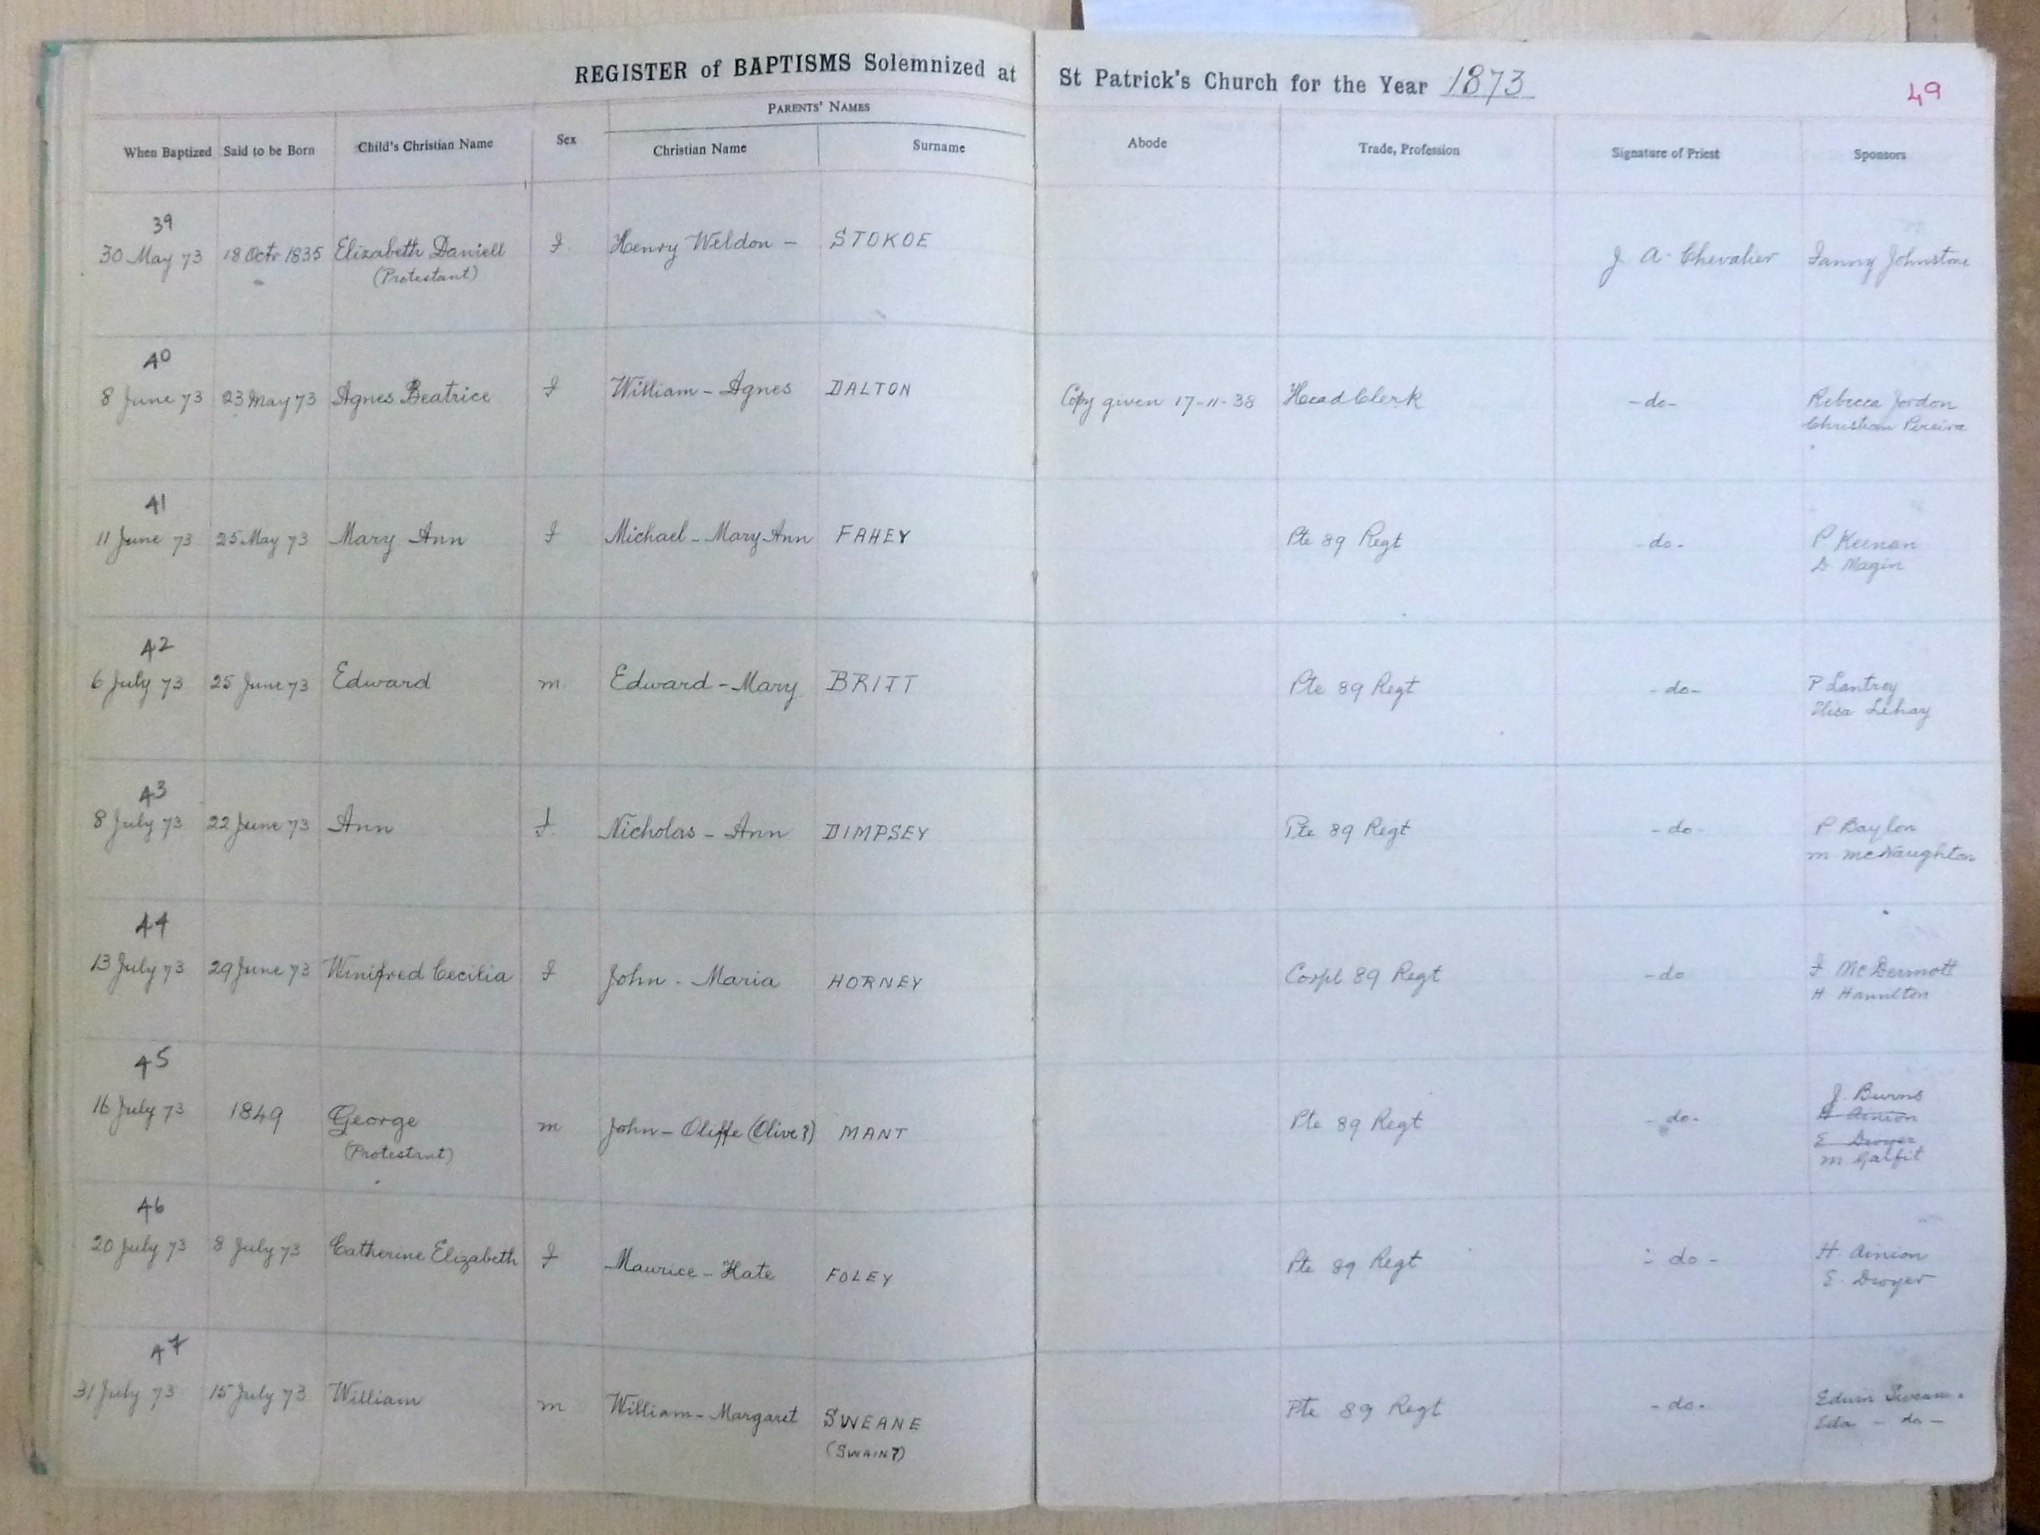 REGISTER of BAPTISMS Solemnized at St Patrick's Church for the Year 1873
49
PARENTS' NAMES
When Baptized Said to be Born Child's Christian Name Sex Christian Name Surname Abode Trade, Profession Signature of Priest Sponsors
39
30 May 73 18 Octr 1835 Elizabeth Daniell F. Henry Weldon - STOKOE J. A. Chevalier Fanny Johnstone
(Protestant)
40
8 June 73 23 May 73 Agnes Beatrice F William - Agnes DALTON Copy given 17-11-38 Head Clerk -do- Rebecca Jordon
Christian Pereira
41
11 June 73 25 May 73 Mary Ann F Michael - Mary Ann FAHEY Pte 89 Regt -do- P Keenan
D Magin
42
6 July 73 25 June 73 Edward m Edward - Mary BRITT Pte 89 Regt -do- P Lantrey
Elisa Lehay
43
8 July 73 22 June 73 Ann f. Nicholas - Ann DIMPSEY Pte 89 Regt -do- P Baylon
m McNaughton
44
13 July 73 29 June 73 Winifred Cecilia F John - Maria HORNEY Corpl 89 Regt -do F McDermott
H Hamilton
45
16 July 73 1849 George m John - Oliffe (Olive?) MANT Pte 89 Regt -do- J. Burns
(Protestant) H Ainion
E Dwyer
m Galfit
46
20 July 73 8 July 73 Catherine Elizabeth F Maurice - Kate FOLEY Pte 89 Regt - do - H. Ainion
E. Dwyer
47
31 July 73 15 July 73 William m William - Margaret SWEANE Pte 89 Regt -do- Edwin Sweane
(SWAIN?) Eda - do -